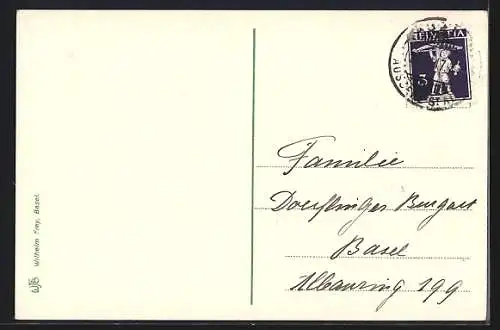 HELVETIA
3
Familie
Doerflinger Burgart
Basel
Allbanring 199
Wilhelm Frey, Basel.